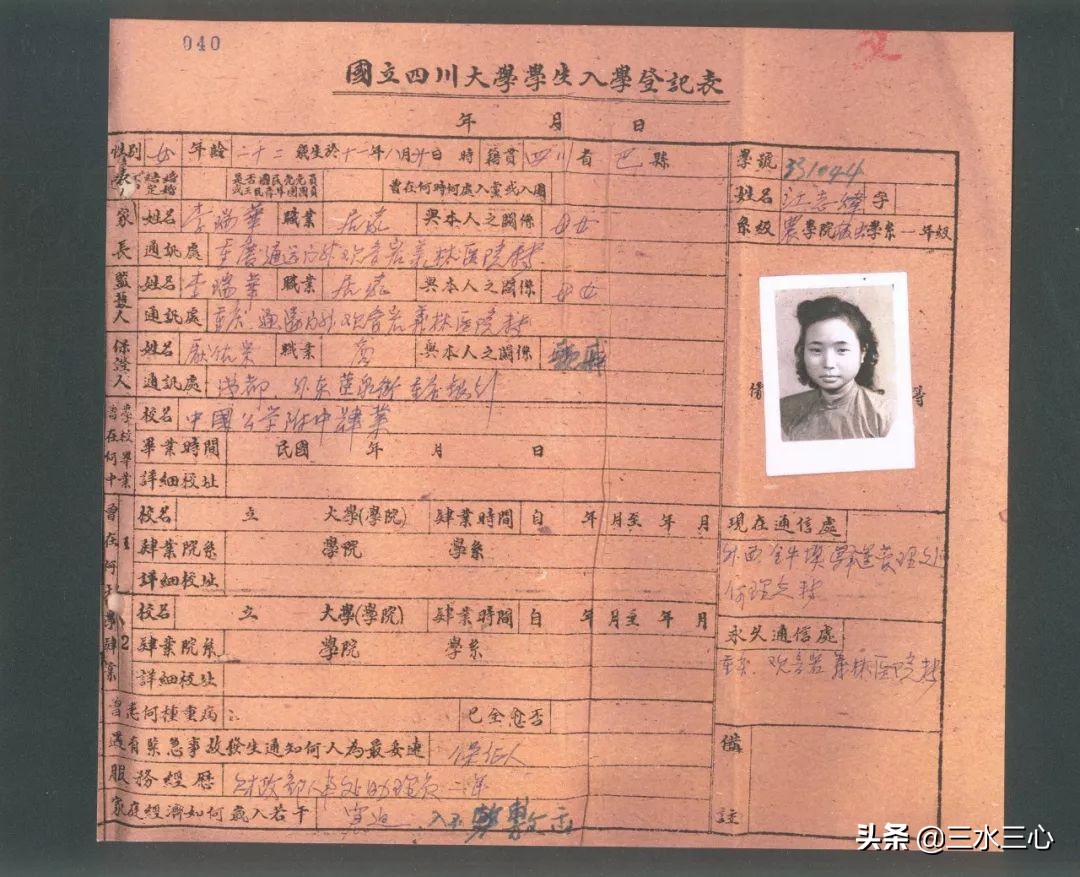 040
國立四川大學學生入學登記表
年 月 日
性別 女 年齡 二十二 歲生於十一年八月廿日 時 籍貫 四川省巴縣
是否國民黨黨員或三民青年團團員 曾在何時何處入黨或入團
家長 姓名 李瑞華 職業 居家 與本人之關係 母女
通訊處 重慶通远门外观音岩義林医院转
監護人 姓名 李瑞華 職業 居家 與本人之關係 母女
通訊處 重庆 通遠门外观音岩義林医院转
保證人 姓名 職業 商 與本人之關係
通訊處 成都 外东
曾在何中學校畢業 校名 中國公学附中肄業
畢業時間 民國 年 月 日
詳細校址
曾在何大學肄業
1 校名 立 大學(學院) 肄業時間 自 年 月至 年 月
肄業院系 學院 學系
詳細校址
2 校名 立 大學(學院) 肄業時間 自 年 月至 年 月
肄業院系 學院 學系
詳細校址
曾患何種重病 已全愈否
遇有緊急事故發生通知何人為最妥速 保证人
服務經歷 财政部人事处助理员一年
家庭經濟如何歲入若干 窘迫 入不敷出
學號 331044
姓名 江志煒 字
系級 農學院 學系一年級
備
現在通信處
外西 管理处
何理立转
永久通信處
重庆. 观音岩義林医院转
備註
头条 @三水三心